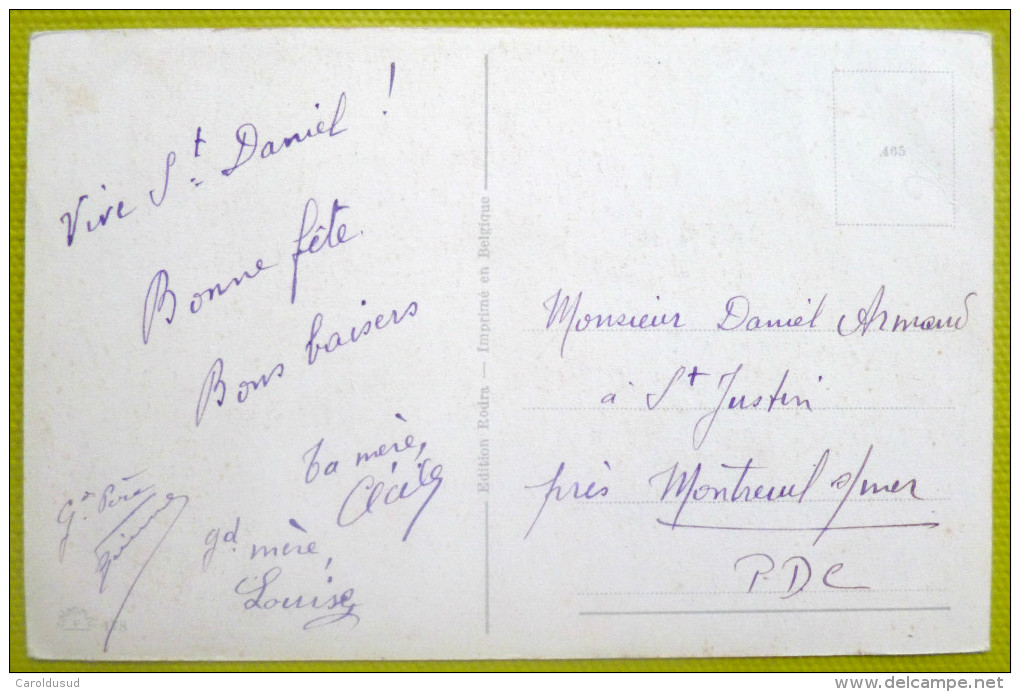 Vive St Daniel !
Bonne fête.
Bons baisers
ta mère,
Cécile
gd. mère,
Louise
Gd Père
Edition Rodra — Imprimé en Belgique
465
Monsieur Daniel Armand
à St Justin
près Montreuil s/mer
P.D.C
478
Caroldusud
http://www.delcampe.net